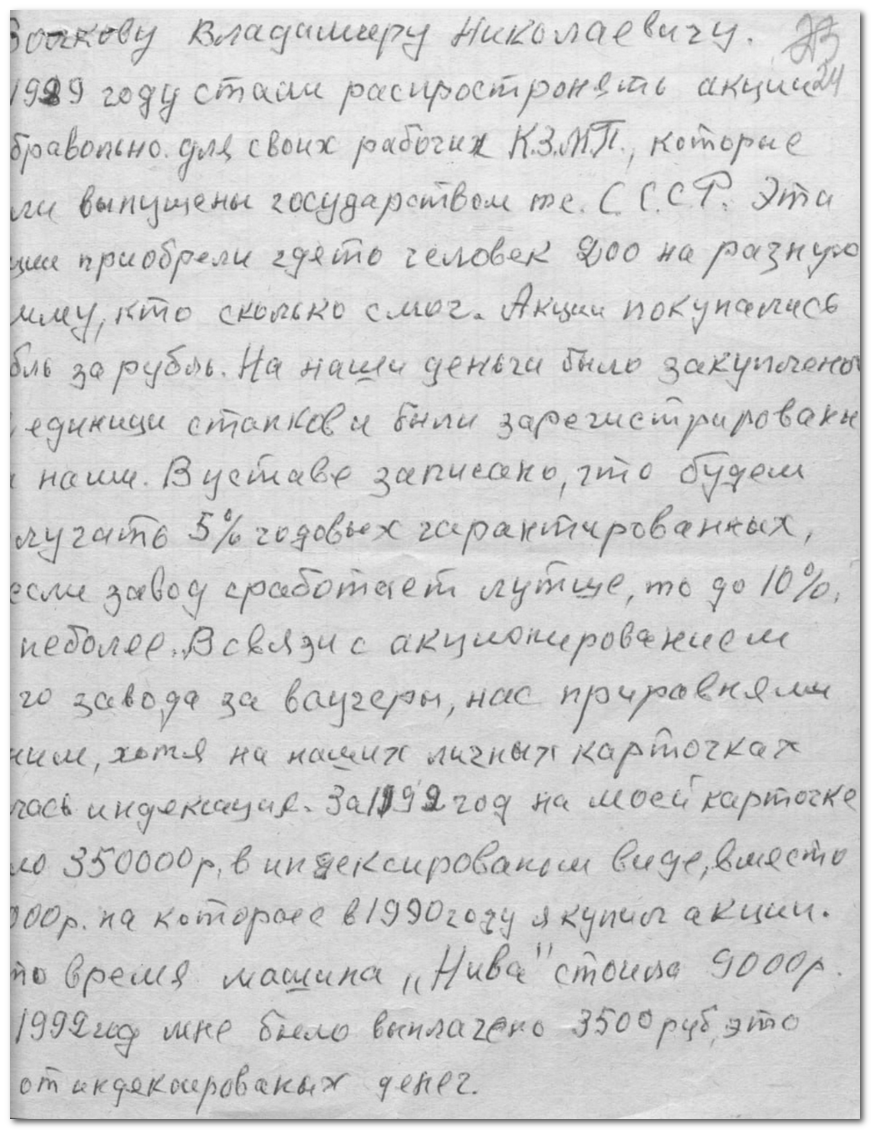 Бочкову Владимиру Николаевичу. 23
1989 году стали распростронять акции 24
бравольно для своих рабочих К.З.М.П., которые
ли выпущены государством те. С.С.С.Р. Эта
ции приобрели гдето человек 200 на разную
мму, кто сколько смог. Акции покупались
бль за рубль. На наши деньги было закуплено
единици станков и были зарегистрированы
наши. В уставе записано, что будем
лучать 5% годовых гарантированных,
если завод сработает лутше, то до 10%,
неболее. В связи с акционированием
го завода за ваучеры, нас прировняли
ним, хотя на наших личных карточках
лась индексация. За 1992 год на моей карточке
ло 350000р, в индексированом виде, вместо
000р. на которые в 1990 году я купил акции.
то время машина „Нива" стоила 9000р.
1992 год мне было выплачено 3500 руб, это
от индексированых денег.